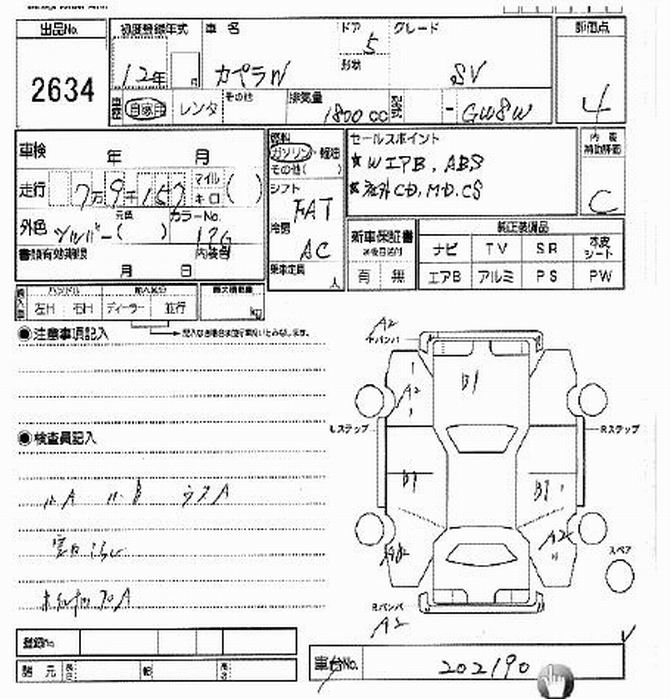 出品No. 初度登録年式 車名 ドア グレード 評価点
2634 12年 カペラW 5 SV 4
形状
車歴 自家用 レンタ その他 排気量 1800cc 型式 -GW8W
車検 年 月
燃料 ガソリン・軽油 その他( )
セールスポイント
内装補助評価
走行 7万9千157 マイル キロ ( )
★WエアB, ABS
シフト FAT
C
外色 シルバー 元色( ) カラーNo. 12G
冷房 AC
内装色
書類有効期限 月 日
乗車定員 人
新車保証書
有 無
純正装備品
ナビ TV SR 本皮シート
エアB アルミ PS PW
ハンドル 輸入区分 最大積載量
左H 右H ディーラー 並行 kg
記入なき場合は並行車扱いとみなします。
●注意事項記入
A2
FバンパA2
B1
A2
Lステップ
Rステップ
●検査員記入
B1
B1
A2
スペア
Rバンパ
A2
登録No
諸元 長さ 幅 高さ
車台No. 202190